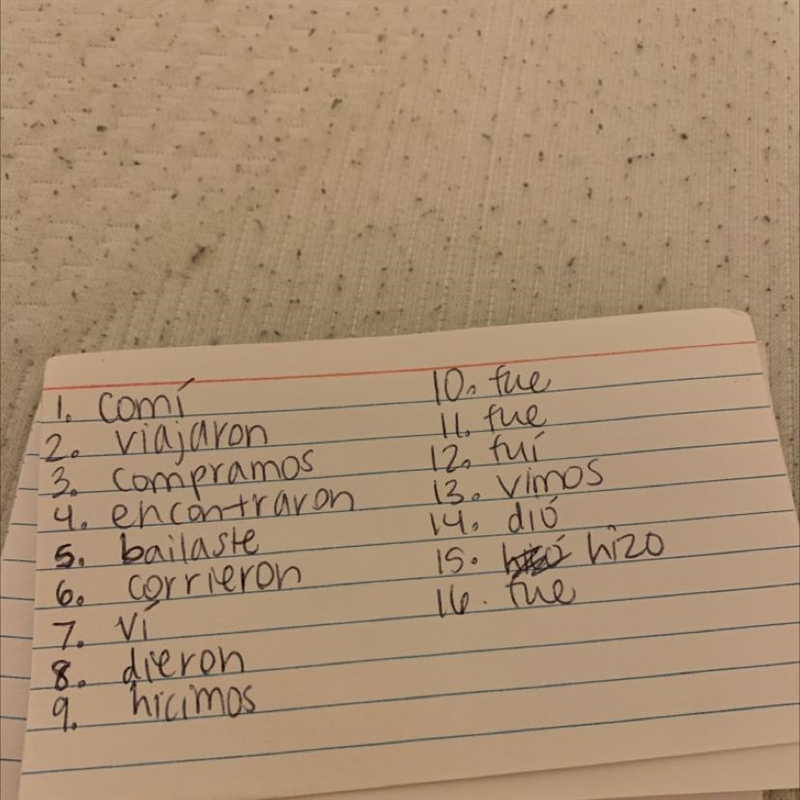 1. comí
2. viajaron
3. compramos
4. encontraron
5. bailaste
6. corrieron
7. ví
8. dieron
9. hicimos
10. fue
11. fue
12. fuí
13. vimos
14. dió
15. hizo
16. fue